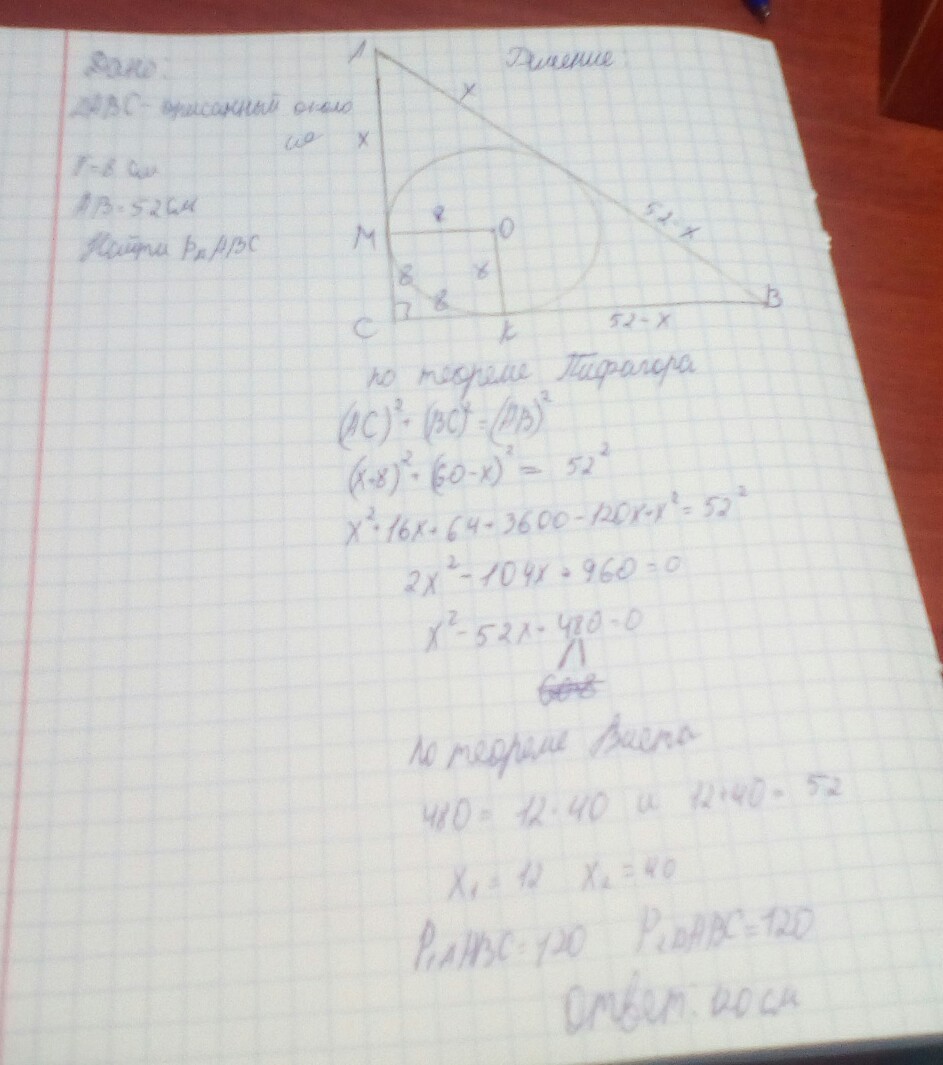 Дано:
△ABC - описанный около
r = 8 см
AB = 52 см
Найти P△ABC
Решение:
A
x
x
52-x
M
8
O
8
8
8
C
K
52-x
B
по теореме Пифагора
(AC)² + (BC)² = (AB)²
(x+8)² + (60-x)² = 52²
x² + 16x + 64 + 3600 - 120x + x² = 52²
2x² - 104x + 960 = 0
x² - 52x + 480 = 0
по теореме Виета
480 = 12·40 и 12+40 = 52
x₁ = 12 x₂ = 40
P₁△ABC = 120 P₂△ABC = 120
Ответ: 120 см